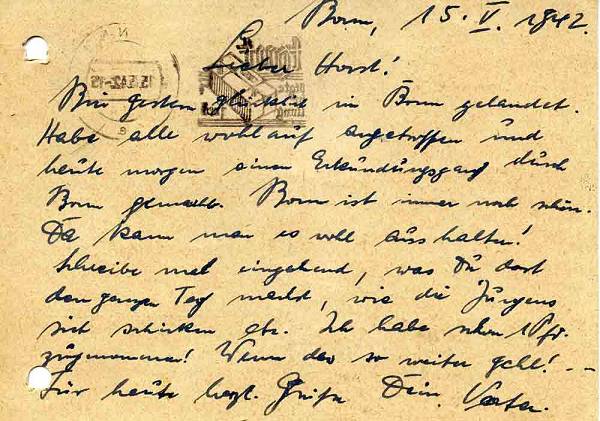 Bonn, 15. V. 1942.
Lieber Horst!
Bin gestern glücklich in Bonn gelandet.
Habe alle wohlauf angetroffen und
heute morgen einen Erkundungsgang durch
Bonn gemacht. Bonn ist immer noch schön.
Da kann man es wohl aushalten!
Schreibe mal eingehend, was Du dort
den ganzen Tag machst, wie die Jürgens
sich schicken etc. Ich habe schon 1 Pfd.
zugenommen! Wenn das so weiter geht! - -
Für heute herzl. Grüße Dein Vater.